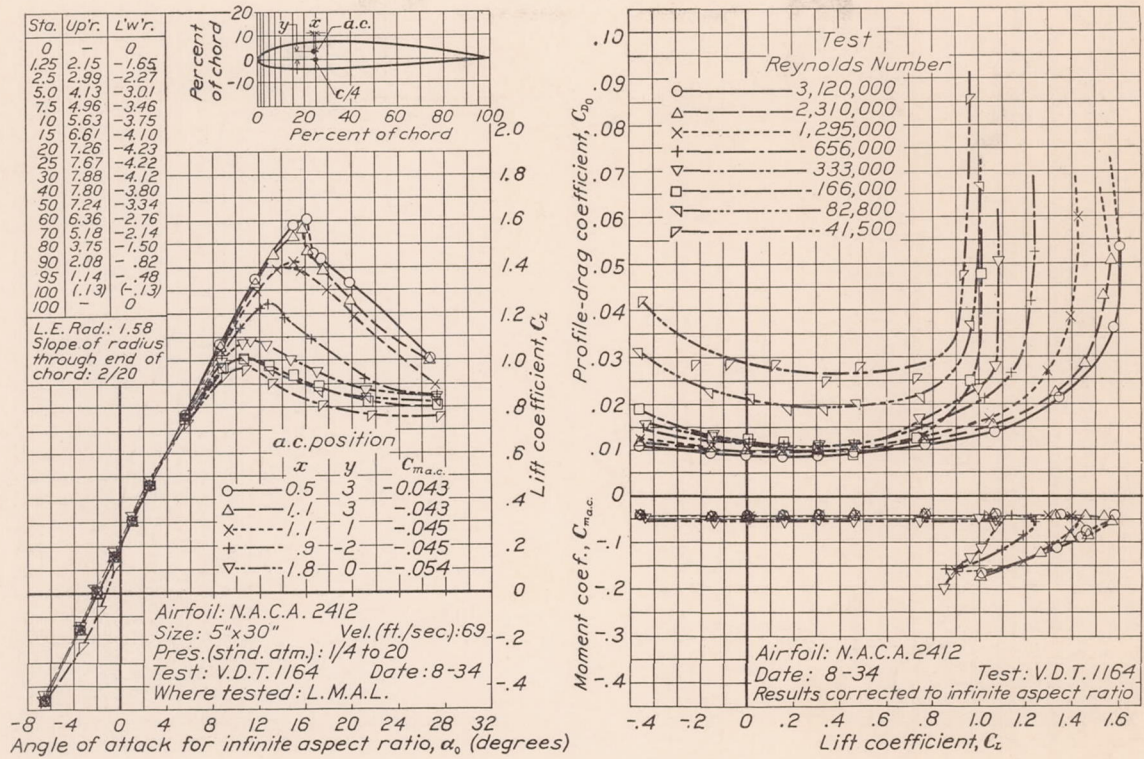 Sta. Up'r. L'w'r.
0 – 0
1.25 2.15 -1.65
2.5 2.99 -2.27
5.0 4.13 -3.01
7.5 4.96 -3.46
10 5.63 -3.75
15 6.61 -4.10
20 7.26 -4.23
25 7.67 -4.22
30 7.88 -4.12
40 7.80 -3.80
50 7.24 -3.34
60 6.36 -2.76
70 5.18 -2.14
80 3.75 -1.50
90 2.08 -.82
95 1.14 -.48
100 (.13) (-.13)
100 – 0
L.E. Rad.: 1.58
Slope of radius
through end of
chord: 2/20
Percent
of chord
20
10
0
-10
y x a.c.
c/4
0 20 40 60 80 100
Percent of chord
2.0
1.8
1.6
1.4
1.2
1.0
.8
.6
.4
.2
0
-.2
-.4
Lift coefficient, CL
a.c. position
x y Cma.c.
0.5 3 -0.043
1.1 3 -.043
1.1 1 -.045
.9 -2 -.045
1.8 0 -.054
Airfoil: N.A.C.A. 2412
Size: 5"x30" Vel.(ft./sec): 69
Pres.(st'nd. atm.): 1/4 to 20
Test: V.D.T. 1164 Date: 8-34
Where tested: L.M.A.L.
-8 -4 0 4 8 12 16 20 24 28 32
Angle of attack for infinite aspect ratio, α0 (degrees)
.10
.09
.08
.07
.06
.05
.04
.03
.02
.01
0
-.1
-.2
-.3
-.4
Profile-drag coefficient, CD0
Moment coef., Cma.c.
Test
Reynolds Number
3,120,000
2,310,000
1,295,000
656,000
333,000
166,000
82,800
41,500
Airfoil: N.A.C.A. 2412
Date: 8-34 Test: V.D.T. 1164
Results corrected to infinite aspect ratio
-.4 -.2 0 .2 .4 .6 .8 1.0 1.2 1.4 1.6
Lift coefficient, CL